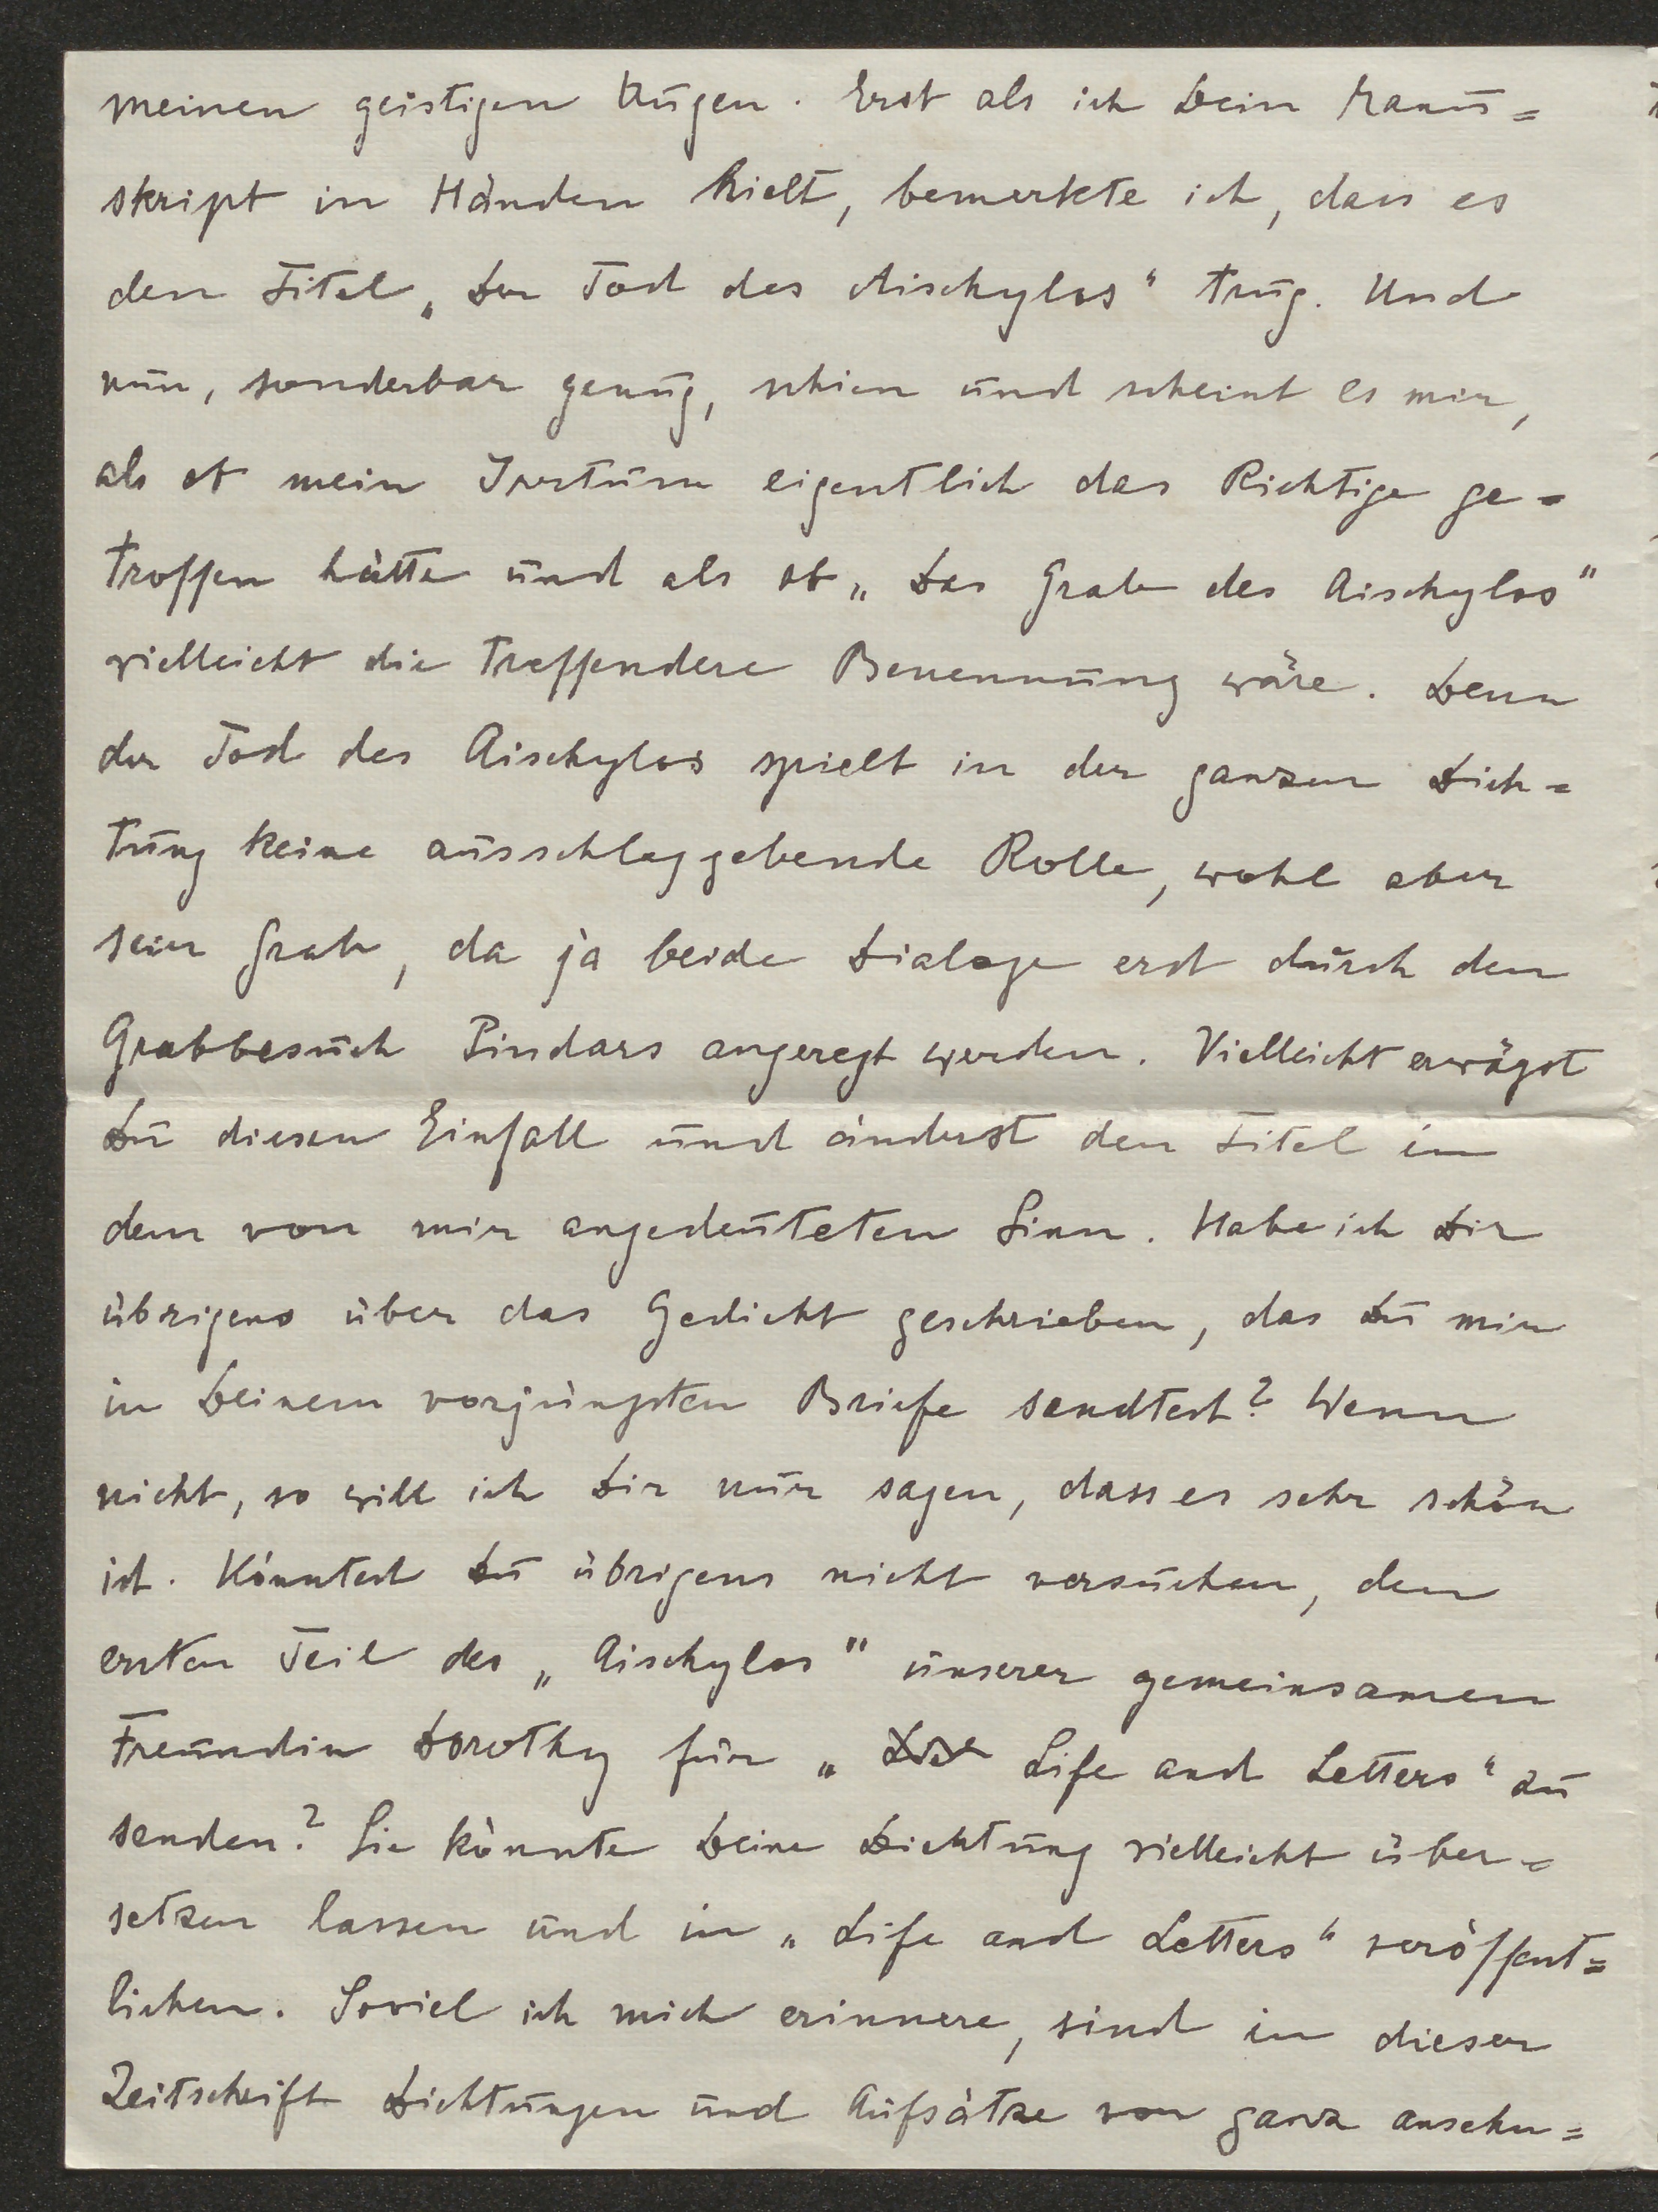 meinen geistigen Augen. Erst als ich Dein Manu=
skript in Händen hielt, bemerkte ich, dass es
den Titel „Der Tod des Aischylos“ trug. Und
nun, sonderbar genug, schien und scheint es mir,
als ob mein Irrtum eigentlich das Richtige ge=
troffen hätte und als ob „Das Grab des Aischylos“
vielleicht die treffendere Benennung wäre. Denn
der Tod des Aischylos spielt in der ganzen Dich=
tung keine ausschlaggebende Rolle, wohl aber
sein Grab, da ja beide Dialoge erst durch den
Grabbesuch Pindars angeregt werden. Vielleicht erwägst
Du diesen Einfall und änderst den Titel in
dem von mir angedeuteten Sinn. Habe ich Dir
übrigens über das Gedicht geschrieben, das Du mir
in Deinem vorjüngsten Briefe sendtest? Wenn
nicht, so will ich Dir nur sagen, dass es sehr schön
ist. Könntest Du übrigens nicht versuchen, den
ersten Teil des „Aischylos“ unserer gemeinsamen
Freundin Dorothy für „Life and Letters“ zu
senden? Sie könnte Deine Dichtung vielleicht über=
setzen lassen und in „Life and Letters“ veröffent=
lichen. Soviel ich mich erinnere, sind in dieser
Zeitschrift Dichtungen und Aufsätze von ganz ansehn=